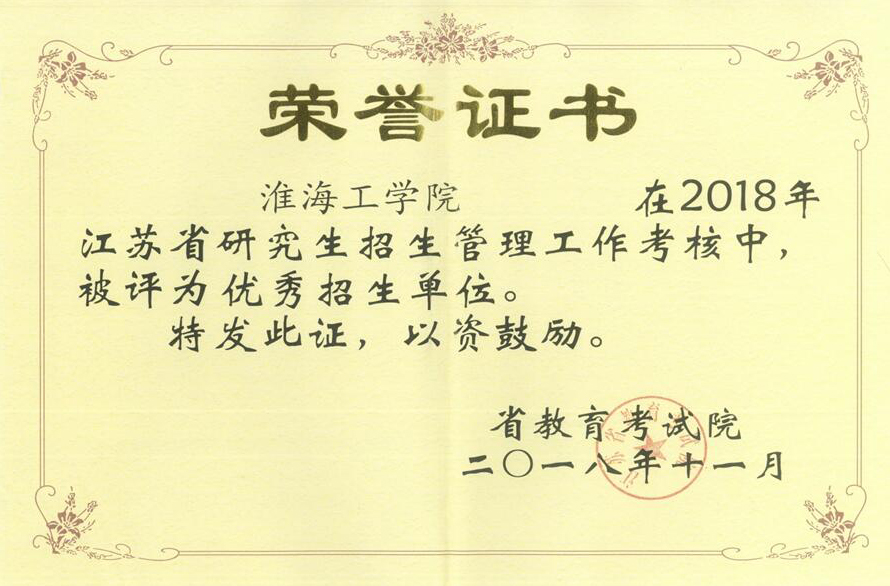 荣誉证书
淮海工学院 在2018年
江苏省研究生招生管理工作考核中，
被评为优秀招生单位。
特发此证，以资鼓励。
省教育考试院
二〇一八年十一月